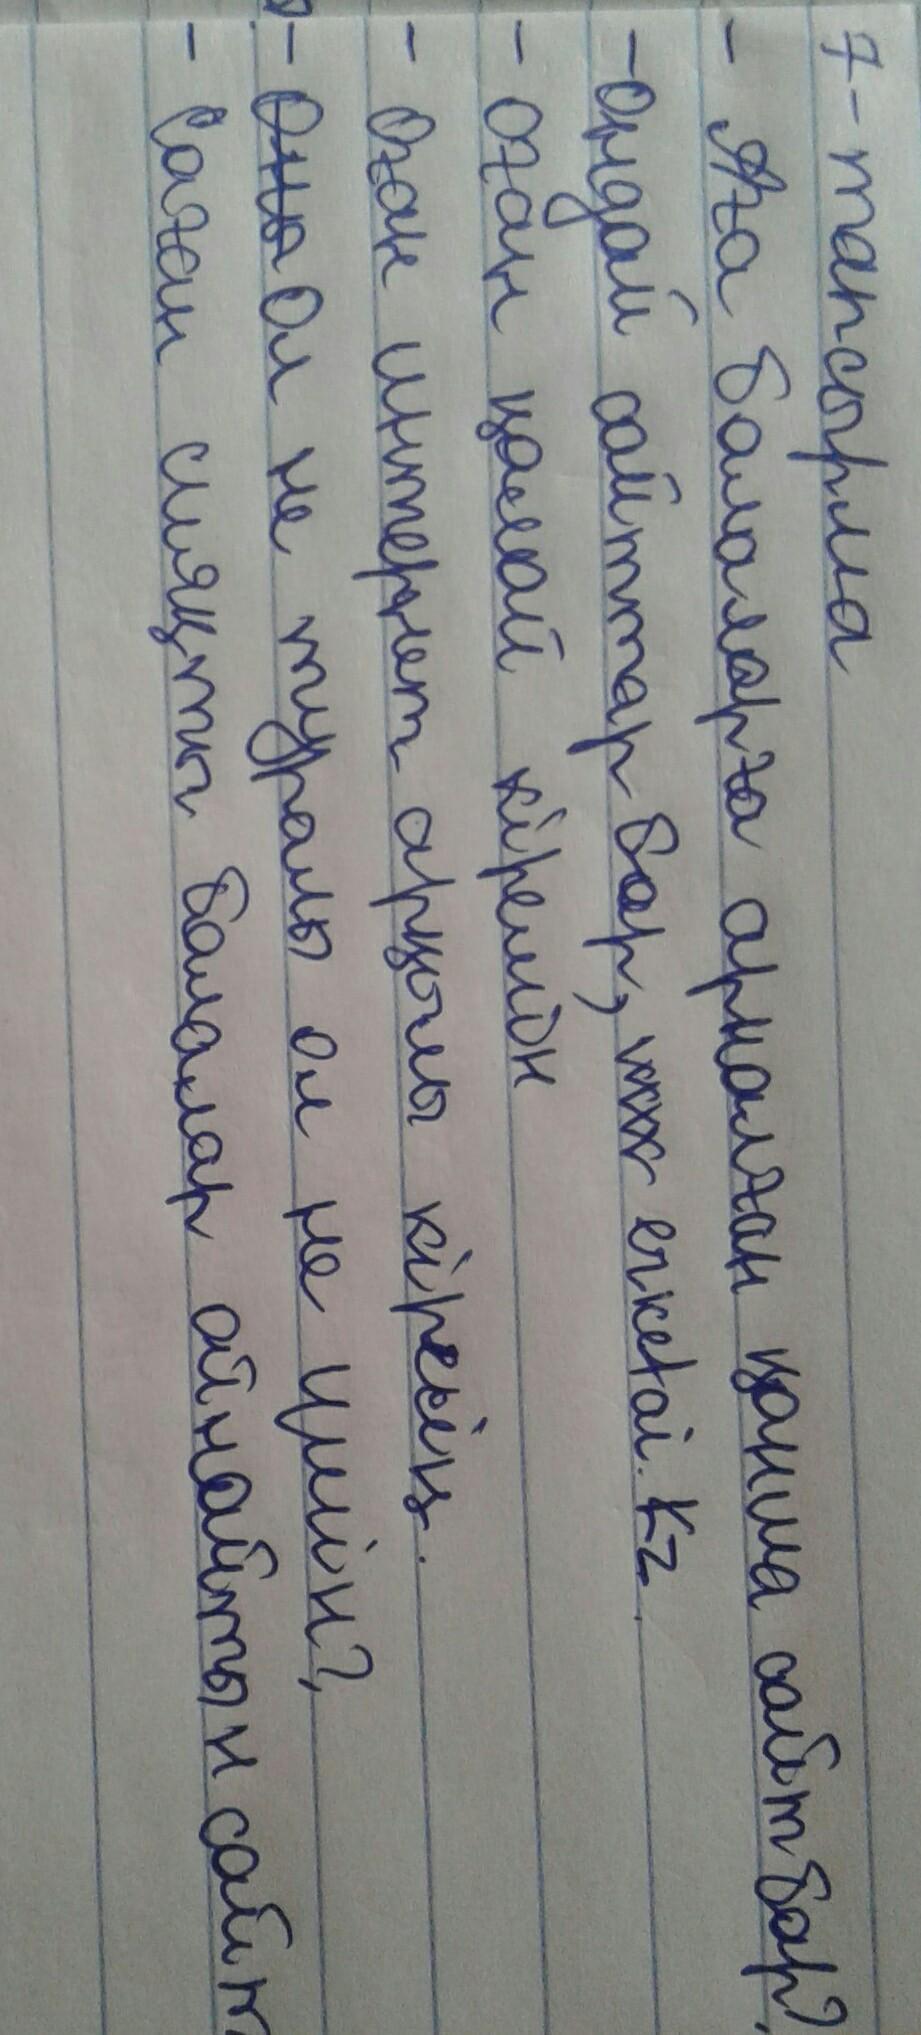 7-тапсырма
- Аға балаларға арналған қанша сайт бар?
- Ондай сайттар бар, erketai.kz
- Оған қалай кіремін
- Оған интернет арқылы кіресің.
- Ол не туралы ол не үшін?
- Саған сияқты балалар ойнайтын сайт